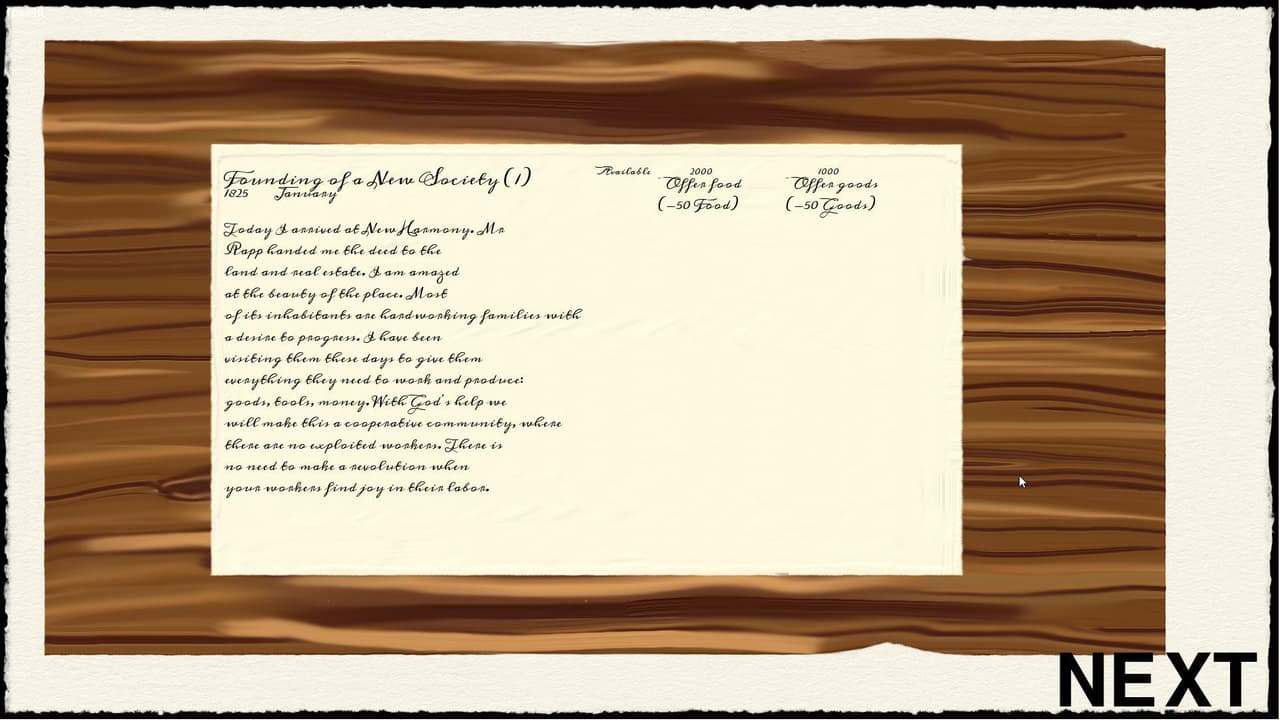 Founding of a New Society (1)
1825 January
Available 2000 1000
Offer food Offer goods
(-50 Food) (-50 Goods)
Today I arrived at New Harmony. Mr
Rapp handed me the deed to the
land and real estate. I am amazed
at the beauty of the place. Most
of its inhabitants are hardworking families with
a desire to progress. I have been
visiting them these days to give them
everything they need to work and produce:
goods, tools, money. With God's help we
will make this a cooperative community, where
there are no exploited workers. There is
no need to make a revolution when
your workers find joy in their labor.
NEXT